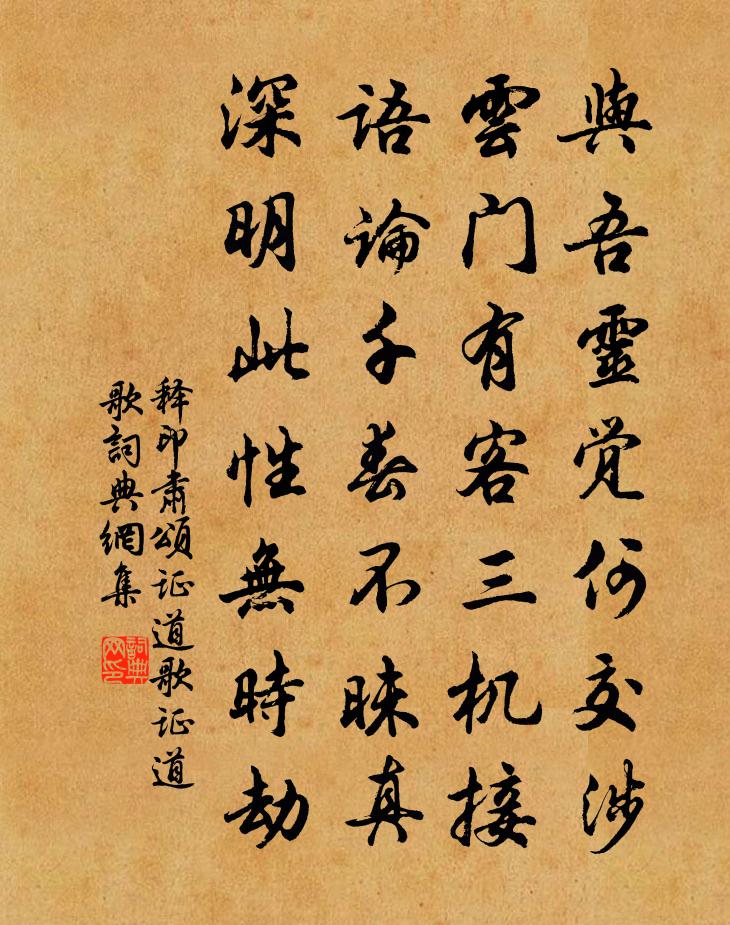 與吾靈覚何交涉
雲门有客三机接
语論千春不昧真
深明此性無時劫
释印肃頌证道歌证道
歌詞典網集
詞典
网印